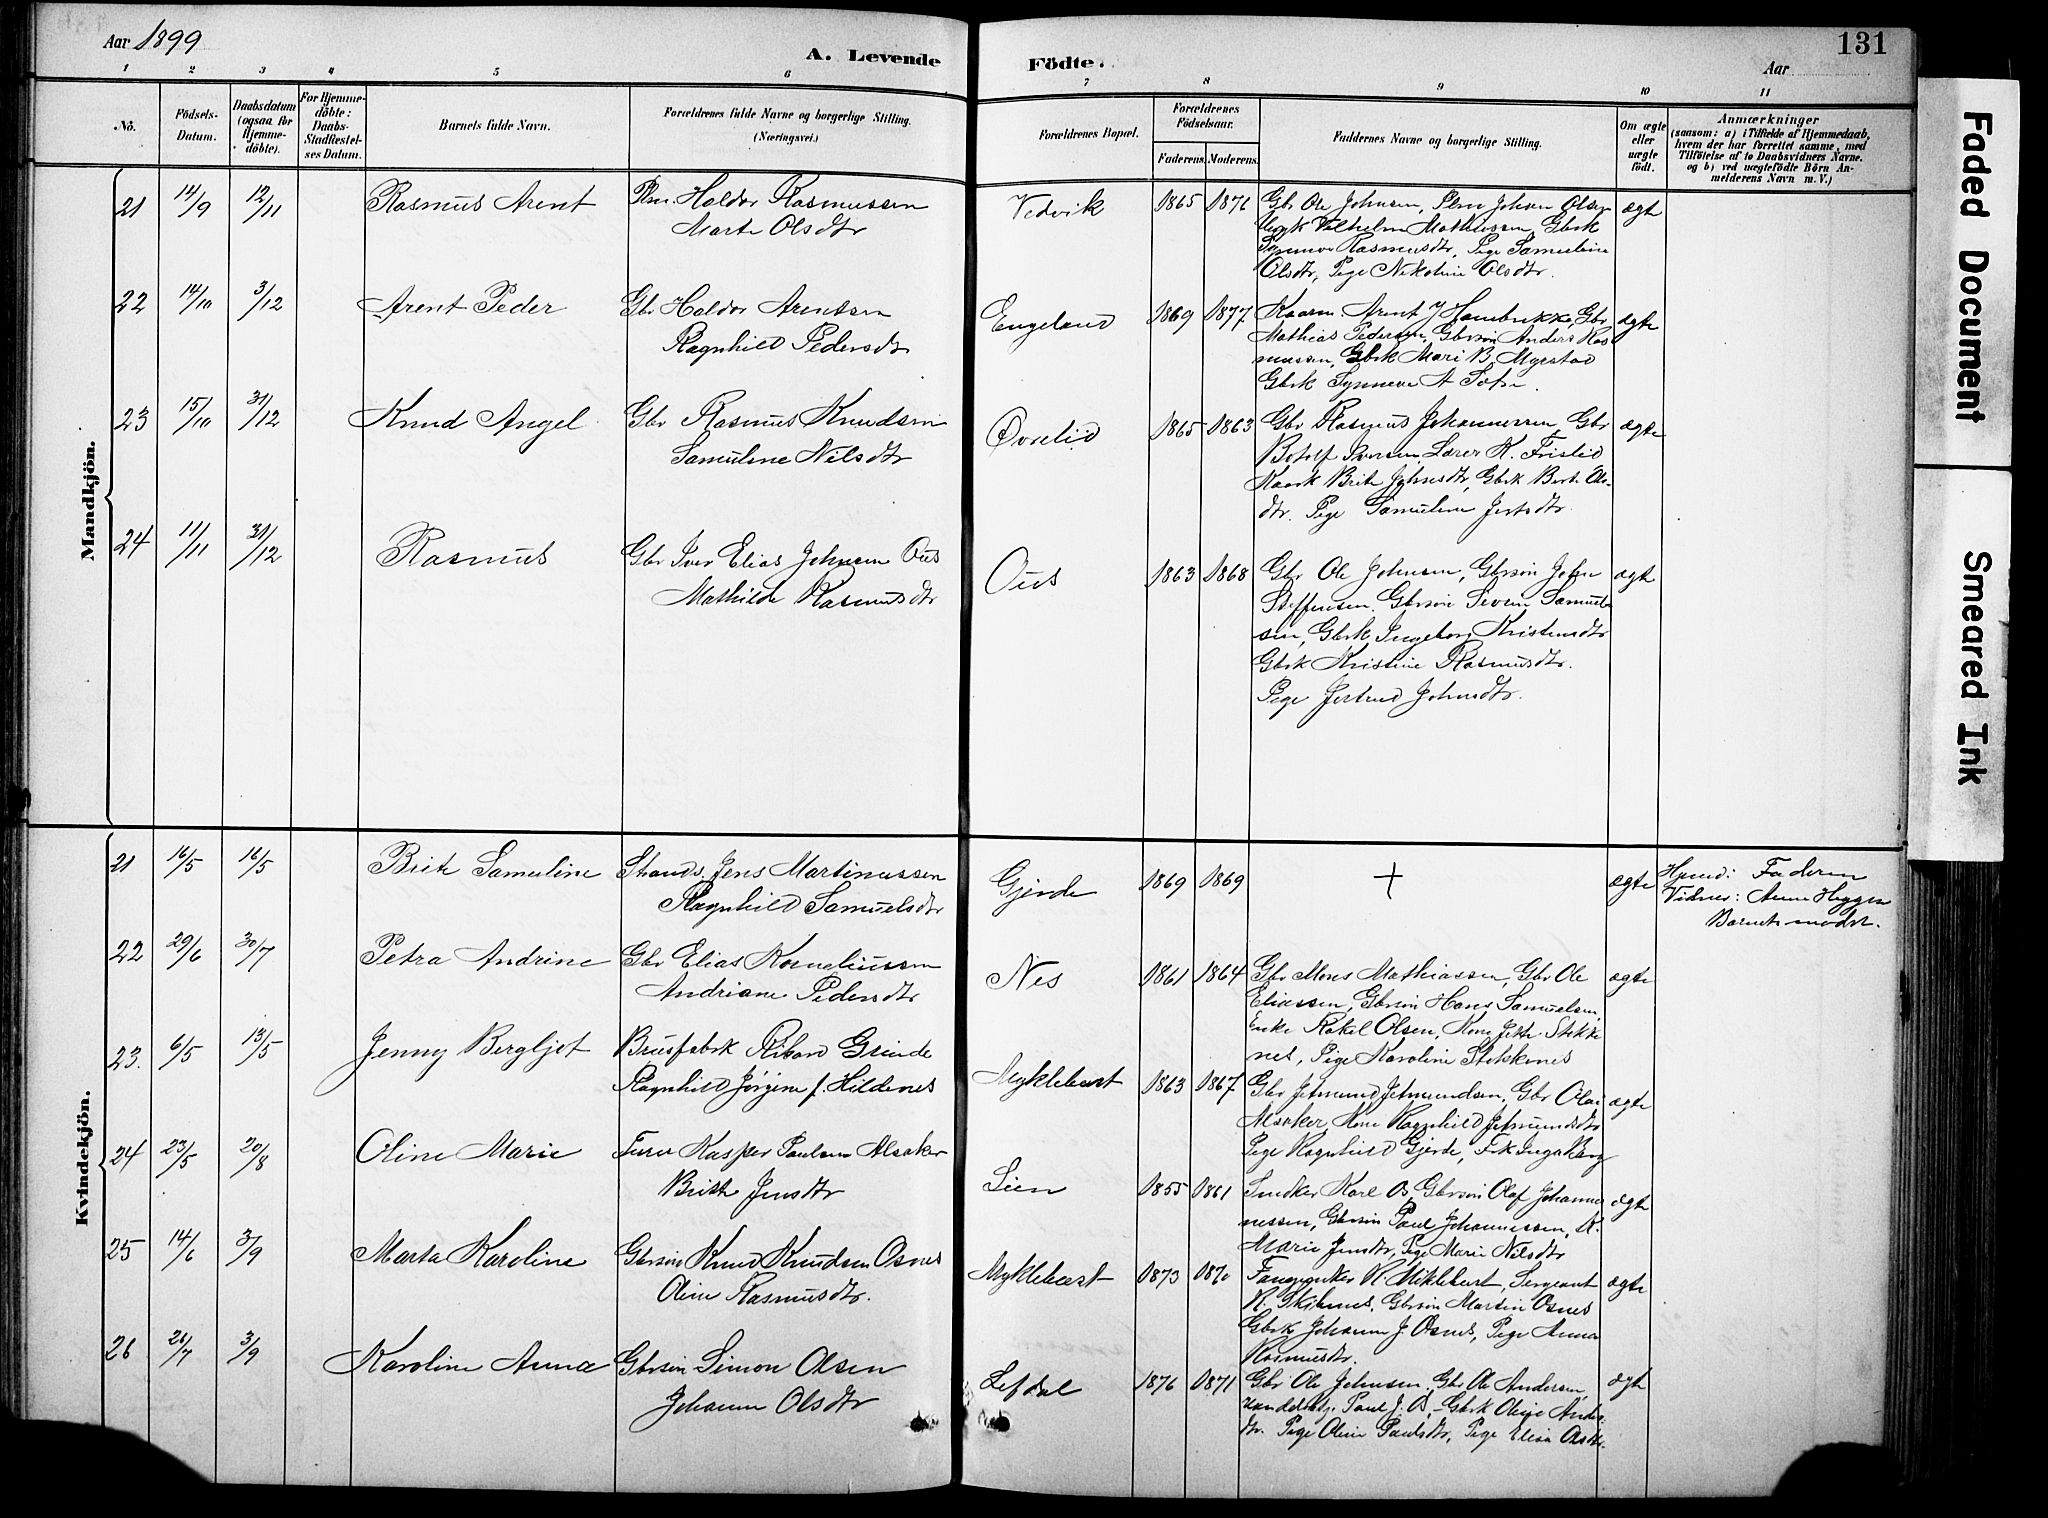 Aar 1899
A. Levende Födte.
Aar
131
1 2 3 4 5 6 7 8 9 10 11
No.
Födsels-Datum.
Daabsdatum (ogsaa for Hjemme-döbte).
For Hjemme-döbte: Daabs-Stadfæstel-ses Datum.
Barnets fulde Navn.
Forældrenes fulde Navne og borgerlige Stilling. (Næringsvei.)
Forældrenes Bopæl.
Forældrenes Födselsaar.
Faderens. Moderens.
Faddernes Navne og borgerlige Stilling.
Om ægte eller uægte födt.
Anmærkninger
(saasom: a) i Tilfælde af Hjemmedaab, hvem der har forrettet samme, med Tilföielse af to Daabsvidners Navne, og b) ved uægtefödte Börn An-melderens Navn m. V.)
Mandkjön.
21 14/9 12/11 Rasmus Arent
Plm. Haldor Rasmussen
Marte Olsdtr
Vedvik 1865 1876
Gbr Ole Johnsen, Plm Johan Olsen
Vilhelm Mathiassen, Gbrk
Synneve Rasmusdtr, Pige Samueline
Olsdtr, Pige Nikoline Olsdtr.
ægte
22 14/10 3/12 Arent Peder
Gbr Haldor Arentsen
Ragnhild Pedersdtr
Engeland 1869 1877
Kaarm. Arent J Hambrekke, Gbr
Mathias Pedersen, Gbrsön Anders Ras
mussen, Gbrk Mari B. Myrstad
Gbrk Synneve A
ægte
23 15/10 31/12 Knud Angel
Gbr Rasmus Knudsen
Samuline Nilsdtr
Övrelid 1865 1863
Gbr Rasmus Johannessen, Gbr
Botolf Iversen Lærer K. Frislid
Kaark Brite Johnsdtr, Gbrk Berte Ols-
dtr. Pige Samuline Jertsdtr.
ægte
24 11/11 31/12 Rasmus
Gbr Iver Elias Johnsen Ous
Mathilde Rasmusdtr
Ous 1863 1868
Gbr Ole Johnsen, Gbrsön John
Steffensen, Gbrsön Severin Samuel
sen, Gbrk Ingeborg Kristensdtr
Gbrk Kristine Rasmusdtr.
Pige Jertrud Johnsdtr.
ægte
Kvindekjön.
21 16/5 16/5 Brit Samuline
Strands. Jens Martinussen
Ragnhild Samuelsdtr
Gjerde 1869 1869
+
ægte
Hjmd: Faderen
Vidner: Anne Heggen
Barnets moder.
22 29/6 30/7 Petra Andrine
Gbr Elias Korneliussen
Andriane Pedersdtr
Nes 1861 1864
Gbr Mons Mathiassen, Gbr Ole
Eliassen, Gbrsön Hans Samuelsen,
Enke Rakel Olsen, Kone Jette Stokke
nes, Pige Karoline Stokkenes
ægte
23. 6/5 13/5 Jenny Bergljot
Brusfabrk Rikard Grinde
Ragnhild Jørgine f. Hildenes
Myklebust 1863 1867
Gbr Jetmund Jetmundsen, Gbr Olai
Alsaker, Kone Ragnhild Jetmundsdtr
Pige Ragnhild Gjerde, Frk Inga Berg
ægte
24 23/5 20/8 Oline Marie
Kasper Paulsen Alsaker
Brith Jensdtr
Lien 1855 1861
Snedker Karl Os, Gbrsön Olaf Johan
nessen, Gbrsön Paul Johannessen, K.
Marie Jensdtr, Pige Marie Nilsdtr
ægte
25 14/6 3/9 Marta Karoline
Gbrsön Knud Knudsen Osnes
Oline Rasmusdtr.
Myklebust 1873 1870
R. Miklebust, Sergeant
R. Gbrsön Martin Osnes
Gbrk Johanne J. Osnes, Pige Anna
Rasmusdtr.
ægte
26 26/7 3/9 Karoline Anna
Gbrsön Simon Olsen
Johanne Olsdtr
Lefdal 1876 1871
Gbr Ole Johnsen, Gbr Ole Andersen,
Handelsbtj. Paul J. Os, Gbrk Oline Anders
dtr. Pige Oline Paulsdtr, Pige Elisa Olsdtr.
ægte
Faded Document
Smeared Ink